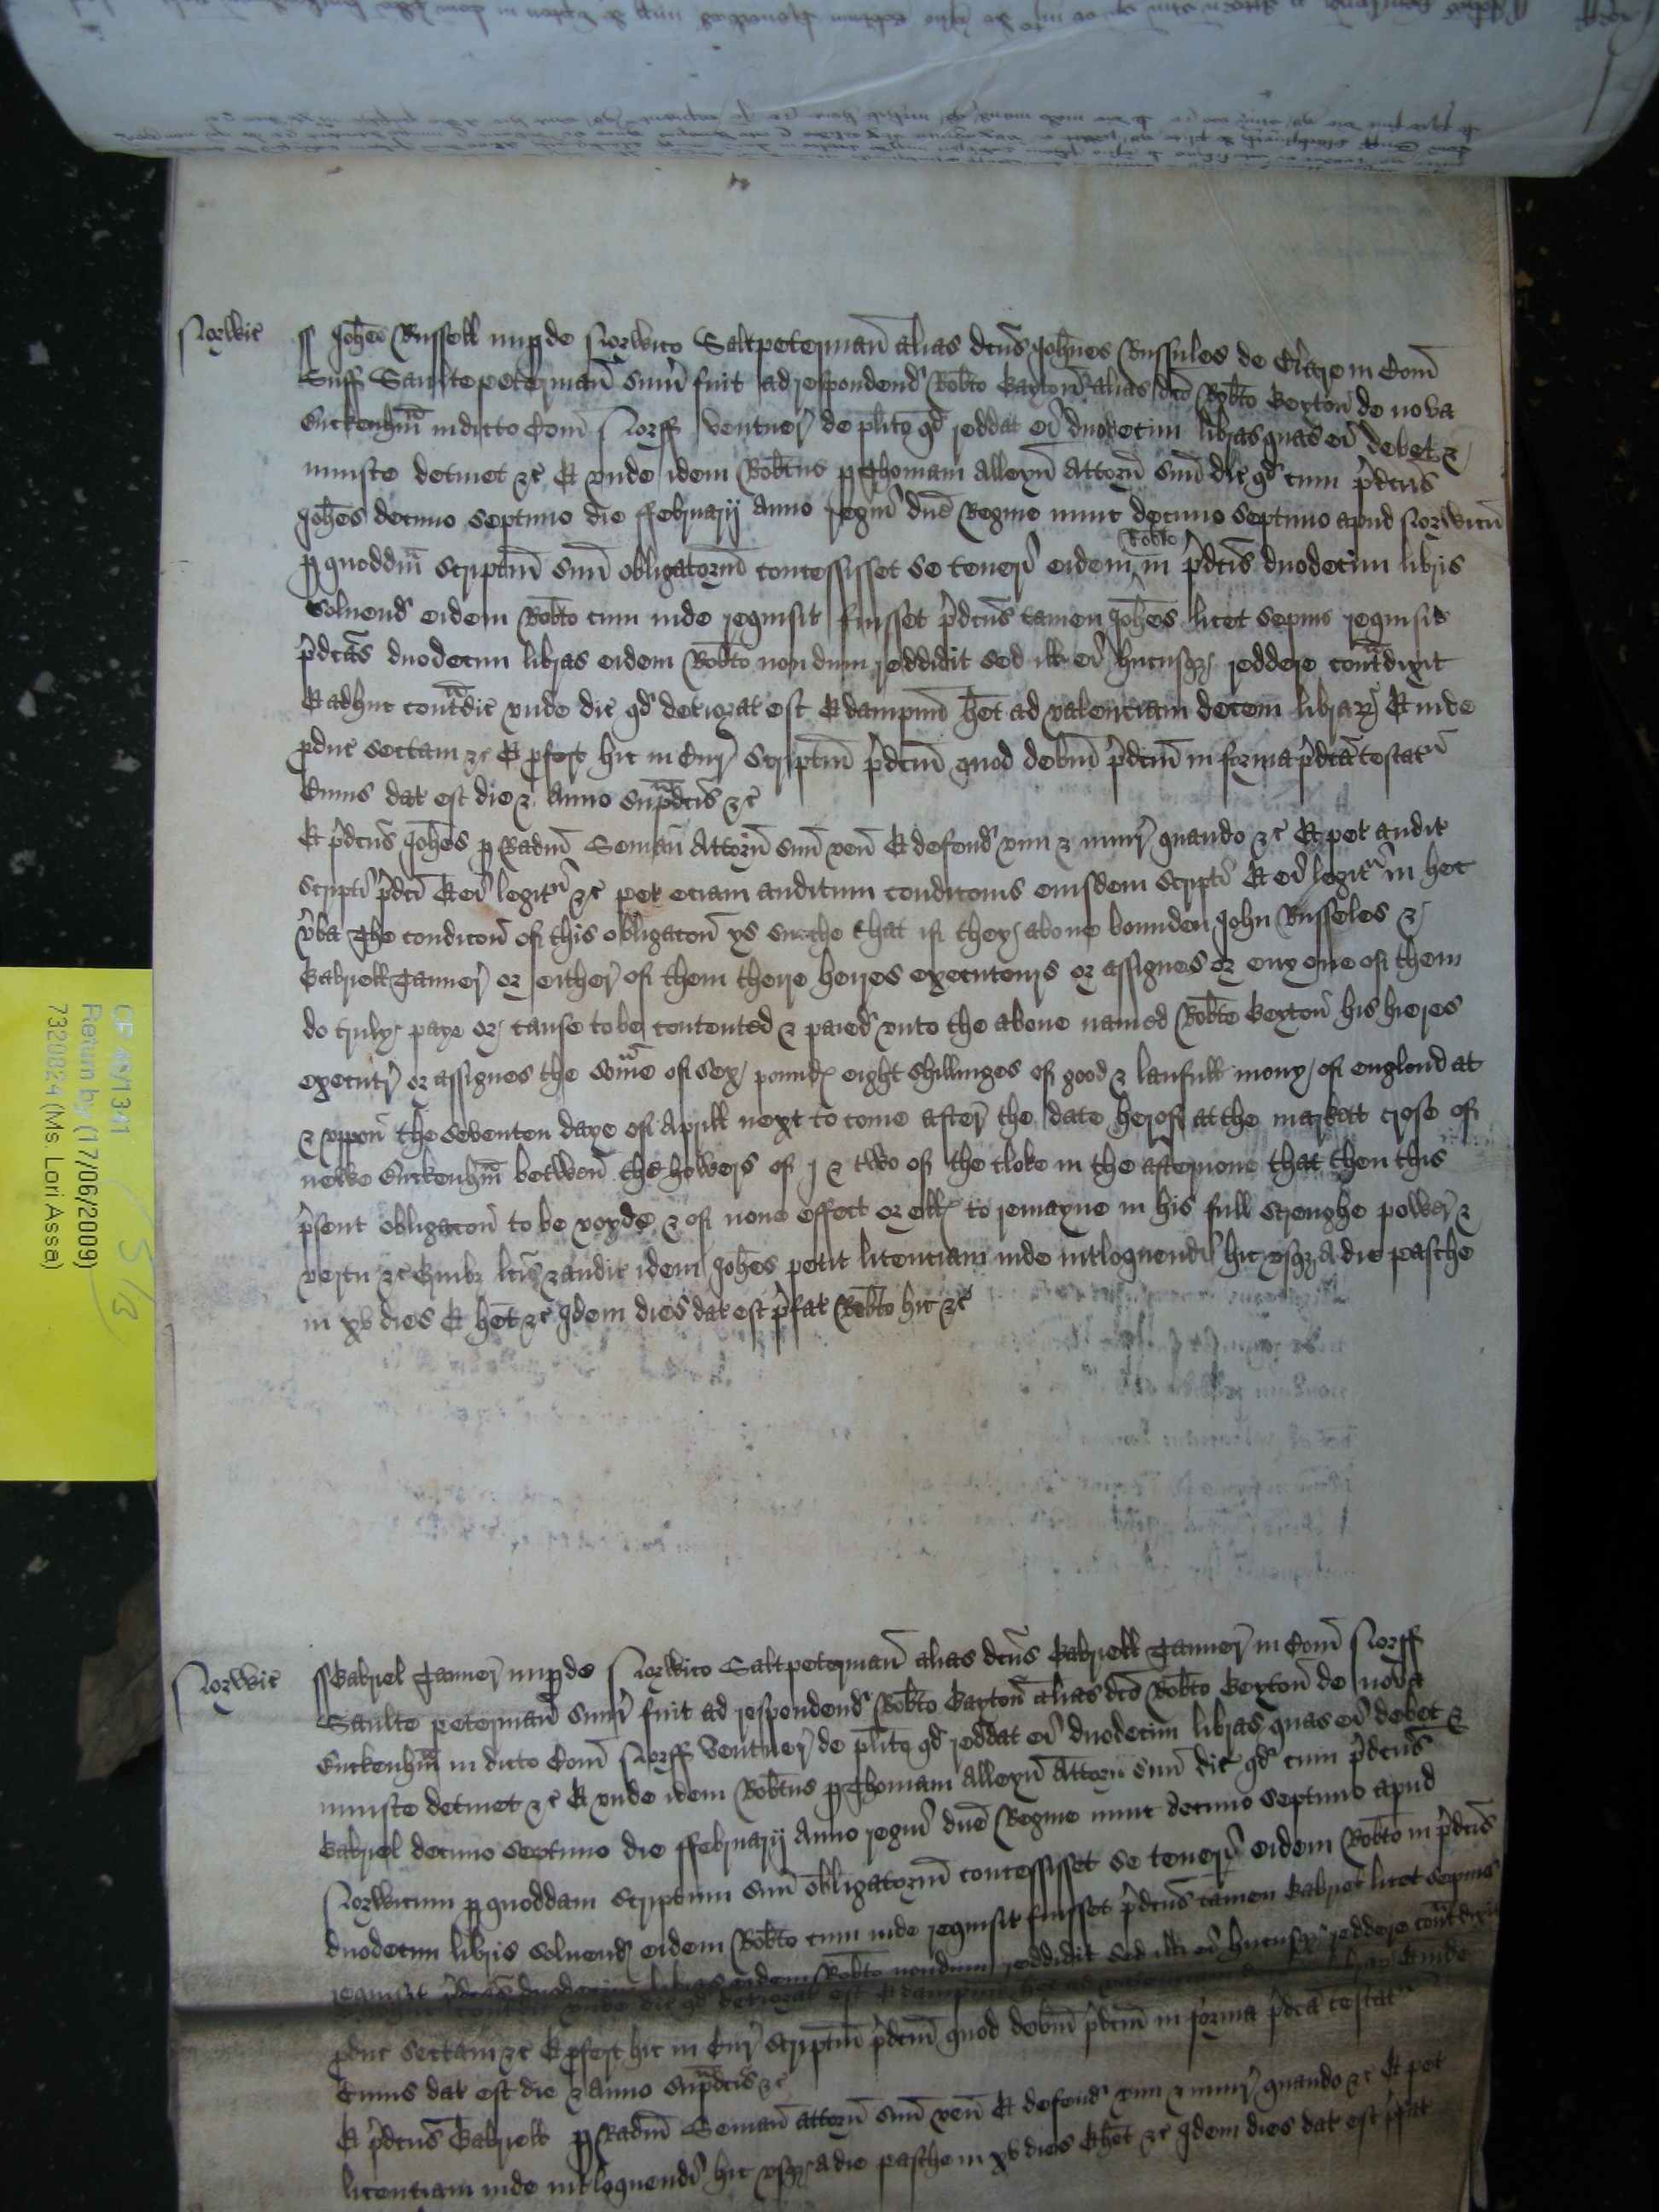 Norwic
ss Joħes Russell nuꝑ de Norwico Saltpetermañ alias dc̄us Joħnes Russules de Clare in Com̄
Suff Saultepetermañ sum̄ fuit ad respondend Rob̄to Gayton̄ alias dc̄o Rob̄to Geyton̄ de nova
Buckenhm̄ in dicto Com̄ Norff ventner̄ de plīto qd reddat ei duodecim libras quas ei debet &
iniuste detinet &c Et unde idem Rob̄tus ꝑ Thomam Alleyn̄ Attorn̄ suū dic̄ qd cum p̄dc̄us
Joħes decimo septimo die ffebruarij Anno regni dn̄e Regine nunc decimo septimo apud Norwicū
ꝑ quoddm̄ scriptū suū obligatoriū concessisset se teneri eidem Rob̄to in p̄dc̄is duodecim libris
Solvend eidem Rob̄to cum inde requisit fuisset p̄dc̄us tamen Joħes licet sepius requisit
p̄dc̄as duodecim libras eidem Rob̄to nondum reddidit sed ill ei hucusqȝ reddere cont̄dixit
Et adhuc cont̄dic̄ unde dic̄ qd deteriorat est Et dampnū ħet ad valenciam decem librar̄ Et inde
ꝓduc̄ sectam &c Et ꝓfert hic in Cur̄ scriptū p̄dc̄m̄ quod debitū p̄dc̄m̄ in forma p̄dc̄a testatr
Cuius dat est die & Anno sup̄dc̄is &c
Et p̄dc̄us Joħes ꝑ Radm̄ Seman̄ Attorn̄ suū ven̄ Et defend vim & iniur̄ quando &c Et pet audit
scripti p̄dc̄i Et ei legitr &c pet eciam auditum condic̄onis eiusdem scripti Et ei legitr in hec
v̄ba The condicon̄ of this obligacon̄ ys suche that if they above bounden John Russeles &
Gabriell Tanner̄ or either̄ of them there heires executours or assignes or eny one of them
do truly paye or cause to be contented & paied unto the above named Rob̄te Geyton̄ his hieres
executr̄ or assignes the som̄e of sex pounds eight shillinges of good & laufull mony of englond at
& uppon̄ the seventen daye of Aprill next to come after̄ the date herof at the markat crose of
newe Buckenhm̄ betwen̄ the howers of j & two of the cloke in the afternone that then this
p̄sent obligacon̄ to be voyde & of none effect or ells to remayne in his full strenghe power̄ &
vertu &c Quibȝ lc̄is & audit idem Joħes petit licenciam inde int̄loquendi hic usqȝ a die pasche
in xv dies Et ħet &c Idem dies dat est p̄fat Rob̄to hic &c
Norwic
ss Gabriel Tanner̄ nuꝑ de Norwico Saltpetermañ alias dc̄us Gabriell Tanner̄ in Com̄ Norff
Saulte petermañ sum̄ fuit ad respondend Rob̄to Gayton̄ alias dc̄o Rob̄to Geyton̄ de nova
Buckenhm̄ in dicto Com̄ Norff Ventner̄ de plīto qd reddat ei duodecim libras quas ei debet &
iniuste detinet &c Et unde idem Rob̄tus ꝑ Thomam Alleyn̄ Attorn̄ suū dic̄ qd cum p̄dc̄us
Gabriel decimo septimo die ffebruarij Anno regni dn̄e Regine nunc decimo septimo apud
Norwicum ꝑ quoddam scriptum suū obligatoriū concessisset se teneri eidem Rob̄to in p̄dc̄is
duodecim libris solvend eidem Rob̄to cum inde requisit fuisset p̄dc̄us tamen Gabriel licet sepius
requisit p̄dc̄as duodecim libras eidem Rob̄to nondum reddidit sed ill ei hucusqȝ reddere cont̄dixit
cont̄dic̄ unde dic̄ qd deteriorat est Et dampnū ħet ad valenciam Et inde
ꝓduc̄ sectam &c Et ꝓfert hic in Cur̄ scriptū p̄dc̄m̄ quod debitū p̄dc̄m̄ in forma p̄dc̄a testatr
Cuius dat est die & anno sup̄dc̄is &c
Et p̄dc̄us Gabriell ꝑ Radm̄ Seman̄ attorn̄ suū ven̄ Et defend vim & iniur̄ quando &c Et pet
licenciam inde int̄loquendi hic usqȝ a die pasche in xv dies Et ħet &c Idem dies dat est p̄fat
CP 40/1341
Return by (17/06/2009)
7320824 (Ms. Lori Assa)